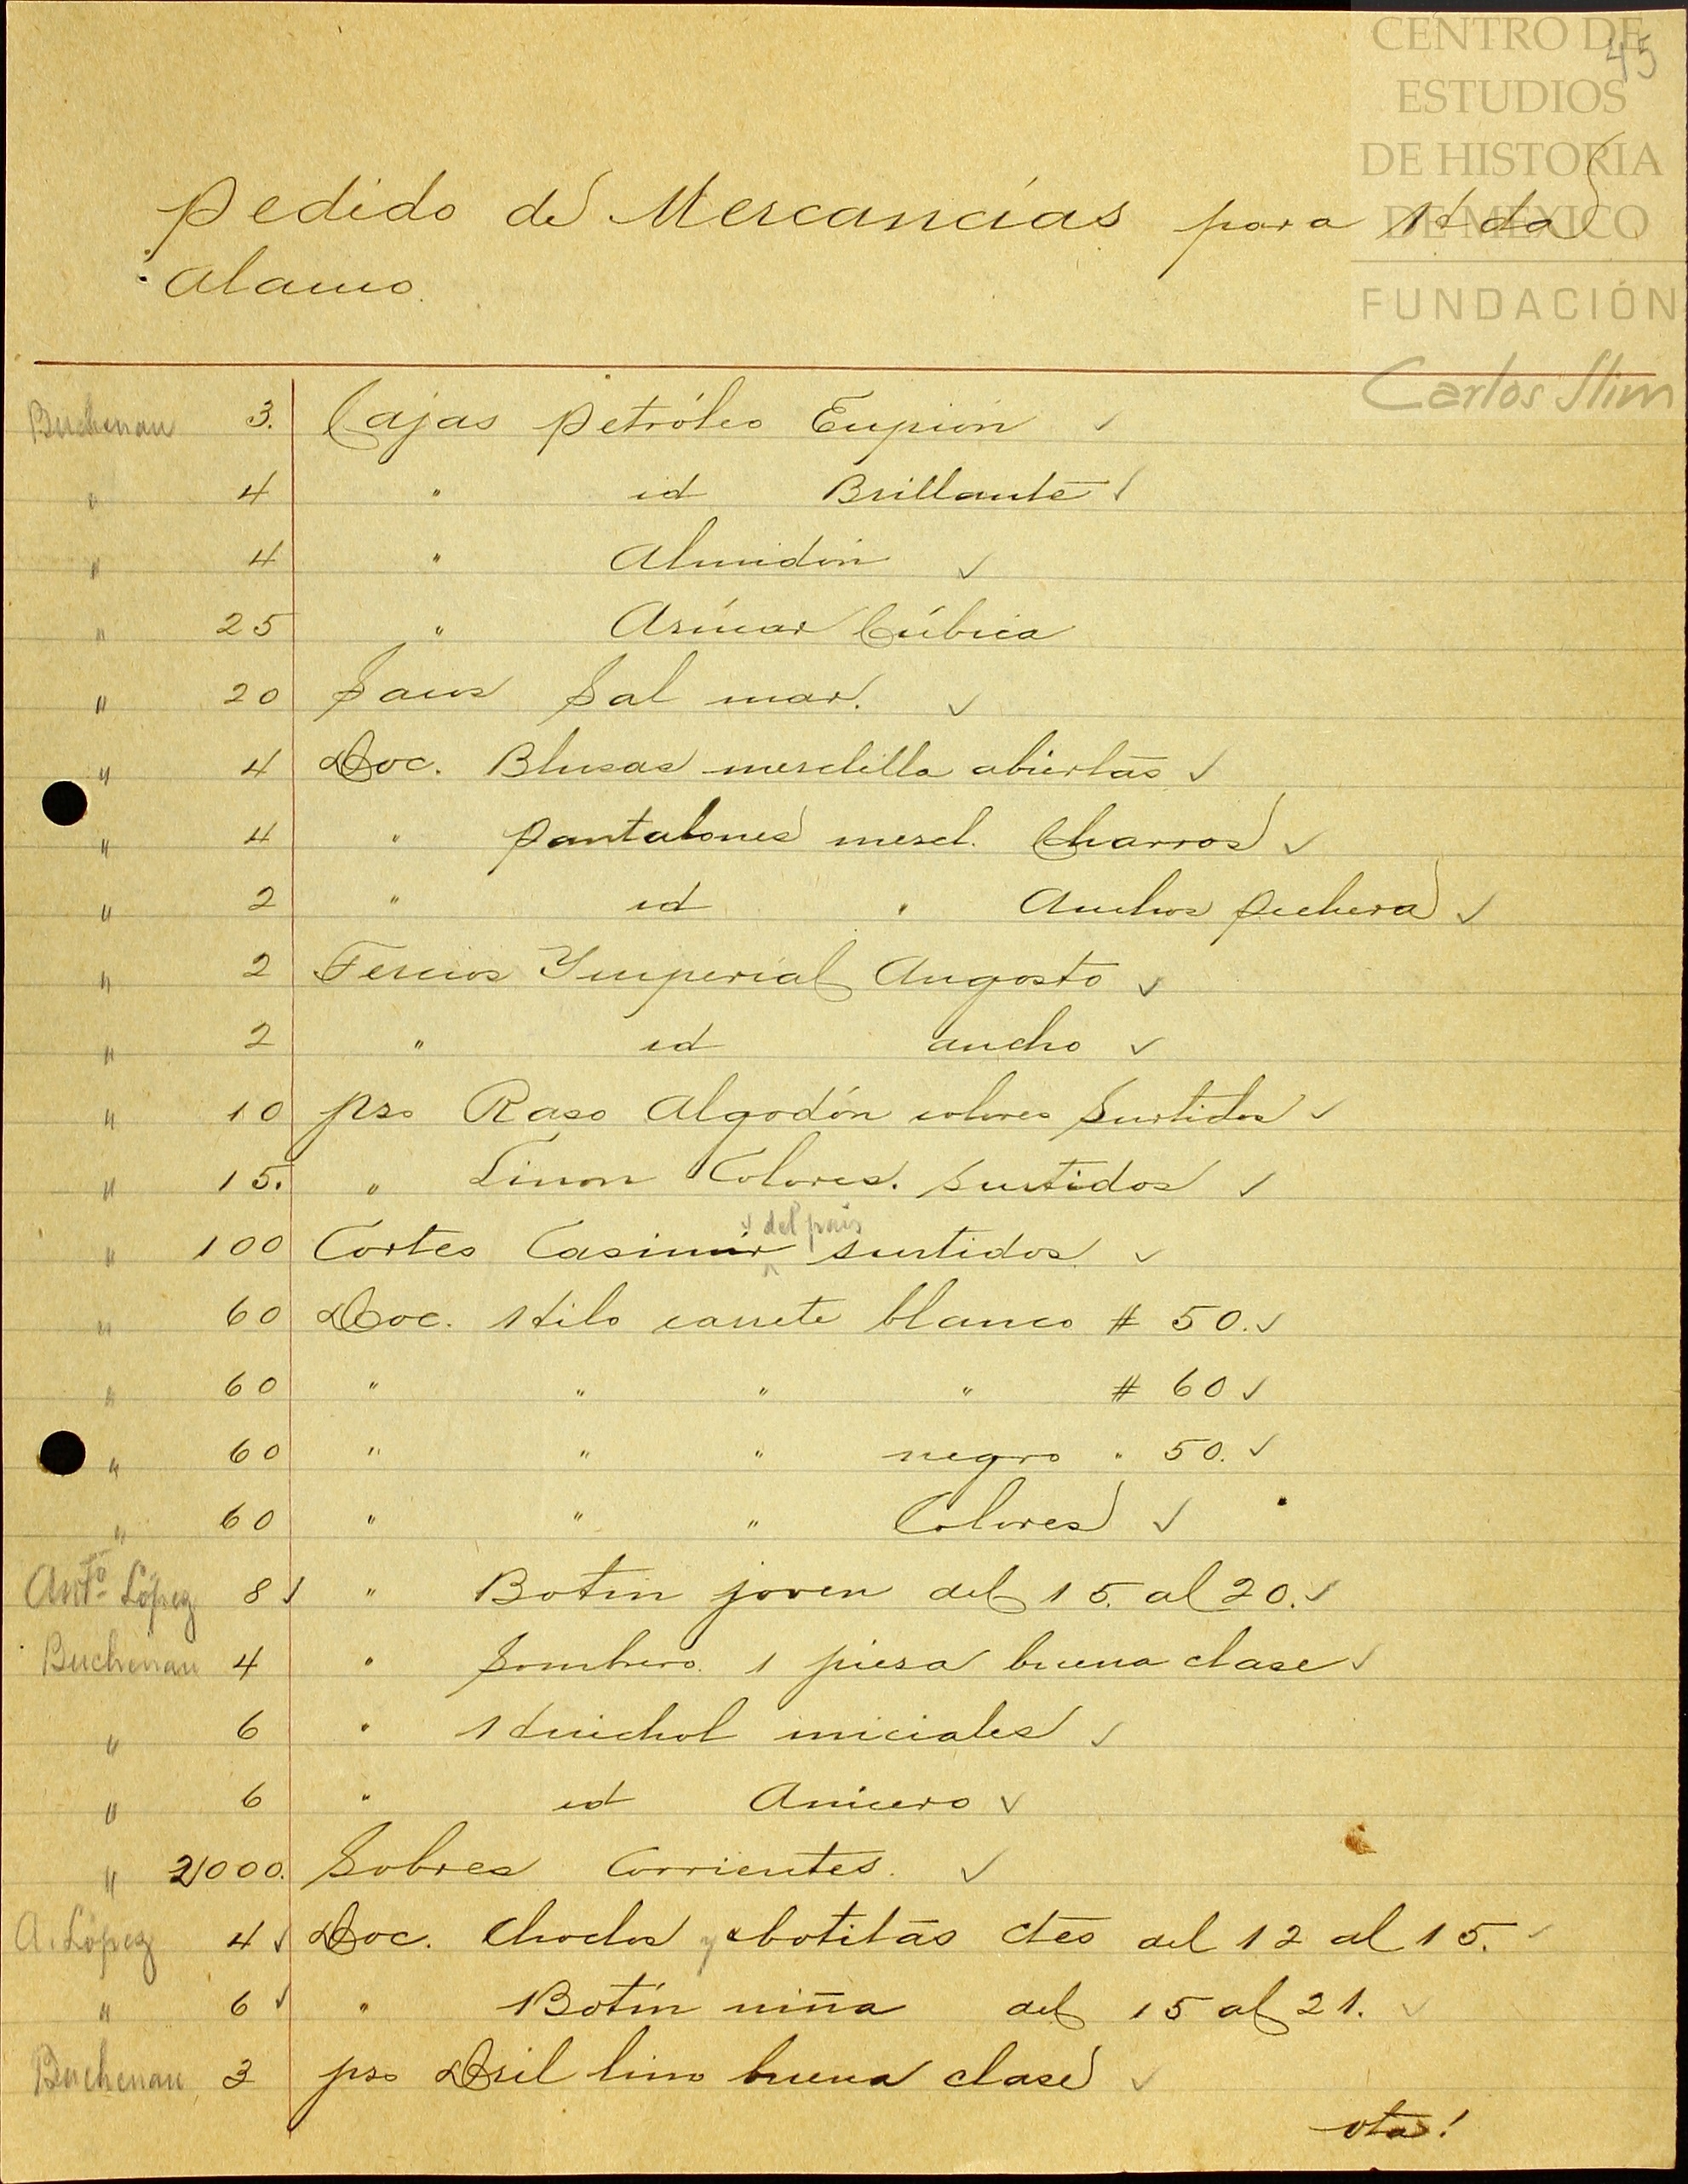 CENTRO DE
ESTUDIOS
DE HISTORIA
DE MÉXICO
FUNDACIÓN
Carlos Slim
45
Pedido de Mercancías para Hda
Alamo.
Buchenau 3. Cajas Petróleo Eupión ✓
" 4 " id Brillante ✓
" 4 " Almidón ✓
" 25 " Asúcar Cúbica
" 20 Sacos Sal mar. ✓
" 4 Doc. Blusas mesclilla abiertas ✓
" 4 " Pantalones mescl. Charros ✓
" 2 " id " Anchos pechera ✓
" 2 Tercios Ymperial Angosto ✓
" 2 " id ancho ✓
" 10 pzs Raso Algodón colores Surtidos ✓
" 15. " Linon Colores. Surtidos ✓
✓ del país
" 100 Cortes Casimir surtidos ✓
" 60 Doc. Hilo carrete blanco # 50. ✓
" 60 " " " " # 60 ✓
" 60 " " " negro " 50. ✓
" 60 " " " Colores ✓
Anto López 8 ✓ " Botin joven del 15. al 20. ✓
Buchenau 4 " Sombrero 1 piesa buena clase ✓
" 6 " Huichol iniciales ✓
" 6 " id ✓
" 2,000. Sobres Corrientes. ✓
A. López 4 ✓ Doc. Choclos y botitas ctes del 12 al 15. ✓
" 6 ✓ " Botín niña del 15 al 21. ✓
Buchenau 3 pzs Dril lino buena clase ✓